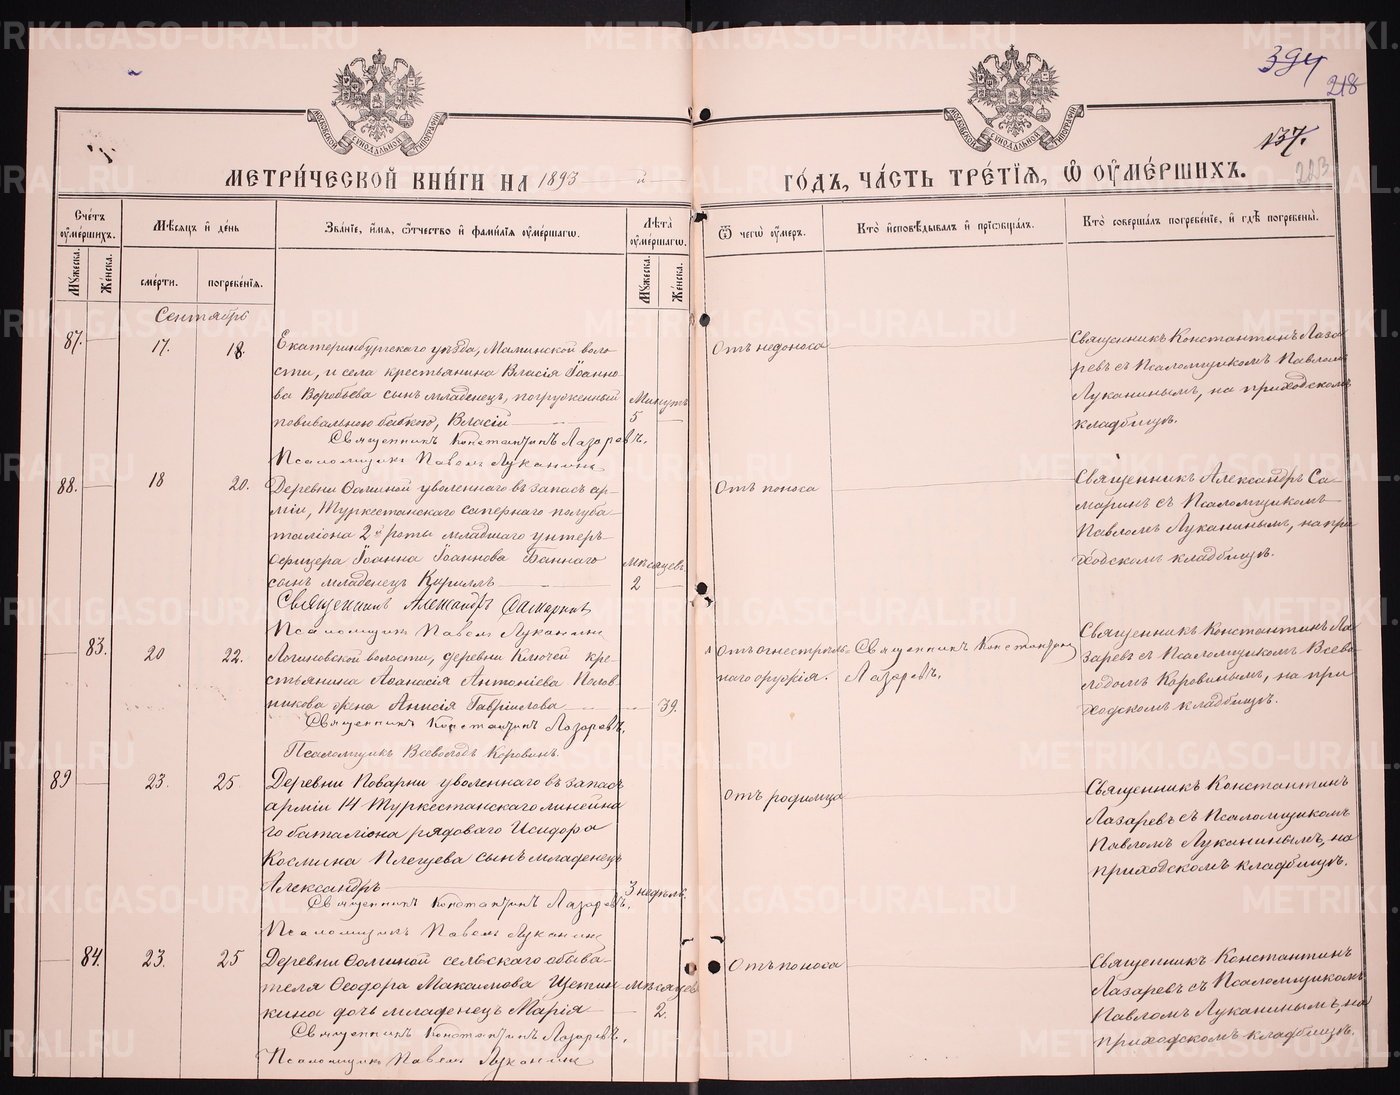 394
218
137.
223
МЕТРИ́ЧЕСКОЙ КНИ́ГИ НА 1893 й
ГО́ДЪ, ЧА́СТЬ ТРЕ́ТІѦ, Ѡ҆ ОУ҆МЕ́РШИХЪ.
Сче́тъ оу҆ме́ршихъ.
Мѣ́сѧцъ и҆ де́нь
Зва́ніе, и҆́мѧ, ѻ҆́тчество и҆ фами́лїѧ оу҆ме́ршагѡ.
Лѣ́та оу҆ме́ршагѡ.
Ѿ чегѡ̀ оу҆́меръ.
Кто̀ и҆сповѣ́дывалъ и҆ прїѡбща́лъ.
Кто̀ соверша́лъ погребе́нїе, и҆ гдѣ̀ погребены̀.
Мꙋ́жеска.
Же́нска.
сме́рти.
погребе́нїѧ.
Мꙋ́жеска.
Же́нска.
Сентябрь
87.
17.
18.
Екатеринбургскаго уѣзда, Маминской воло-
сти, и села крестьянина Власія Іоанно-
ва Воробьева сынъ младенецъ, погруженный
повивальною бабкою, Власій
Священникъ Константинъ Лазаревъ.
Псаломщикъ Павелъ Луканинъ
Минутъ
5
Отъ недоноса
Священникъ Константинъ Лаза-
ревъ съ Псаломщикомъ Павломъ
Луканинымъ, на приходскомъ
кладбищѣ.
88.
18
20.
Деревни Ѳоминой уволеннаго въ запасъ ар-
міи, Туркестанскаго сапернаго полуба-
таліона 2й роты младшаго унтеръ-
офицера Іоанна Іоаннова Баннаго
сынъ младенецъ Кириллъ
Священникъ Александръ Самаринъ
Псаломщикъ Павелъ Луканинъ
мѣсяцевъ
2
Отъ поноса
Священникъ Александръ Са-
маринъ съ Псаломщикомъ
Павломъ Луканинымъ, на при-
ходскомъ кладбищѣ.
83.
20
22.
Логиновской волости, деревни Ключей кре-
стьянина Аѳанасія Антоніева Полов-
никова жена Анисія Гавріилова
Священникъ Константинъ Лазаревъ.
Псаломщикъ Всеволодъ Коровинъ.
39.
Отъ огнестрѣль-
наго оружія.
Священникъ Константинъ
Лазаревъ.
Священникъ Константинъ Ла-
заревъ съ Псаломщикомъ Всево-
лодомъ Коровинымъ, на при-
ходскомъ кладбищѣ.
89
23.
25
Деревни Поварни уволеннаго въ запасъ
арміи 14 Туркестанскаго линейна-
го баталіона рядоваго Исидора
Космина Плещева сынъ младенецъ
Александръ
Священникъ Константинъ Лазаревъ.
Псаломщикъ Павелъ Луканинъ
3 недѣль.
Отъ родимца
Священникъ Константинъ
Лазаревъ съ Псаломщикомъ
Павломъ Луканинымъ, на
приходскомъ кладбищѣ.
84.
23.
25
Деревни Ѳоминой сельскаго обыва-
теля Ѳеодора Максимова Щетин-
кина дочь младенецъ Марія
Священникъ Константинъ Лазаревъ.
Псаломщикъ Павелъ Луканинъ
мѣсяцев
2.
Отъ поноса
Священникъ Константинъ
Лазаревъ съ Псаломщикомъ
Павломъ Луканинымъ, на
приходскомъ кладбищѣ.